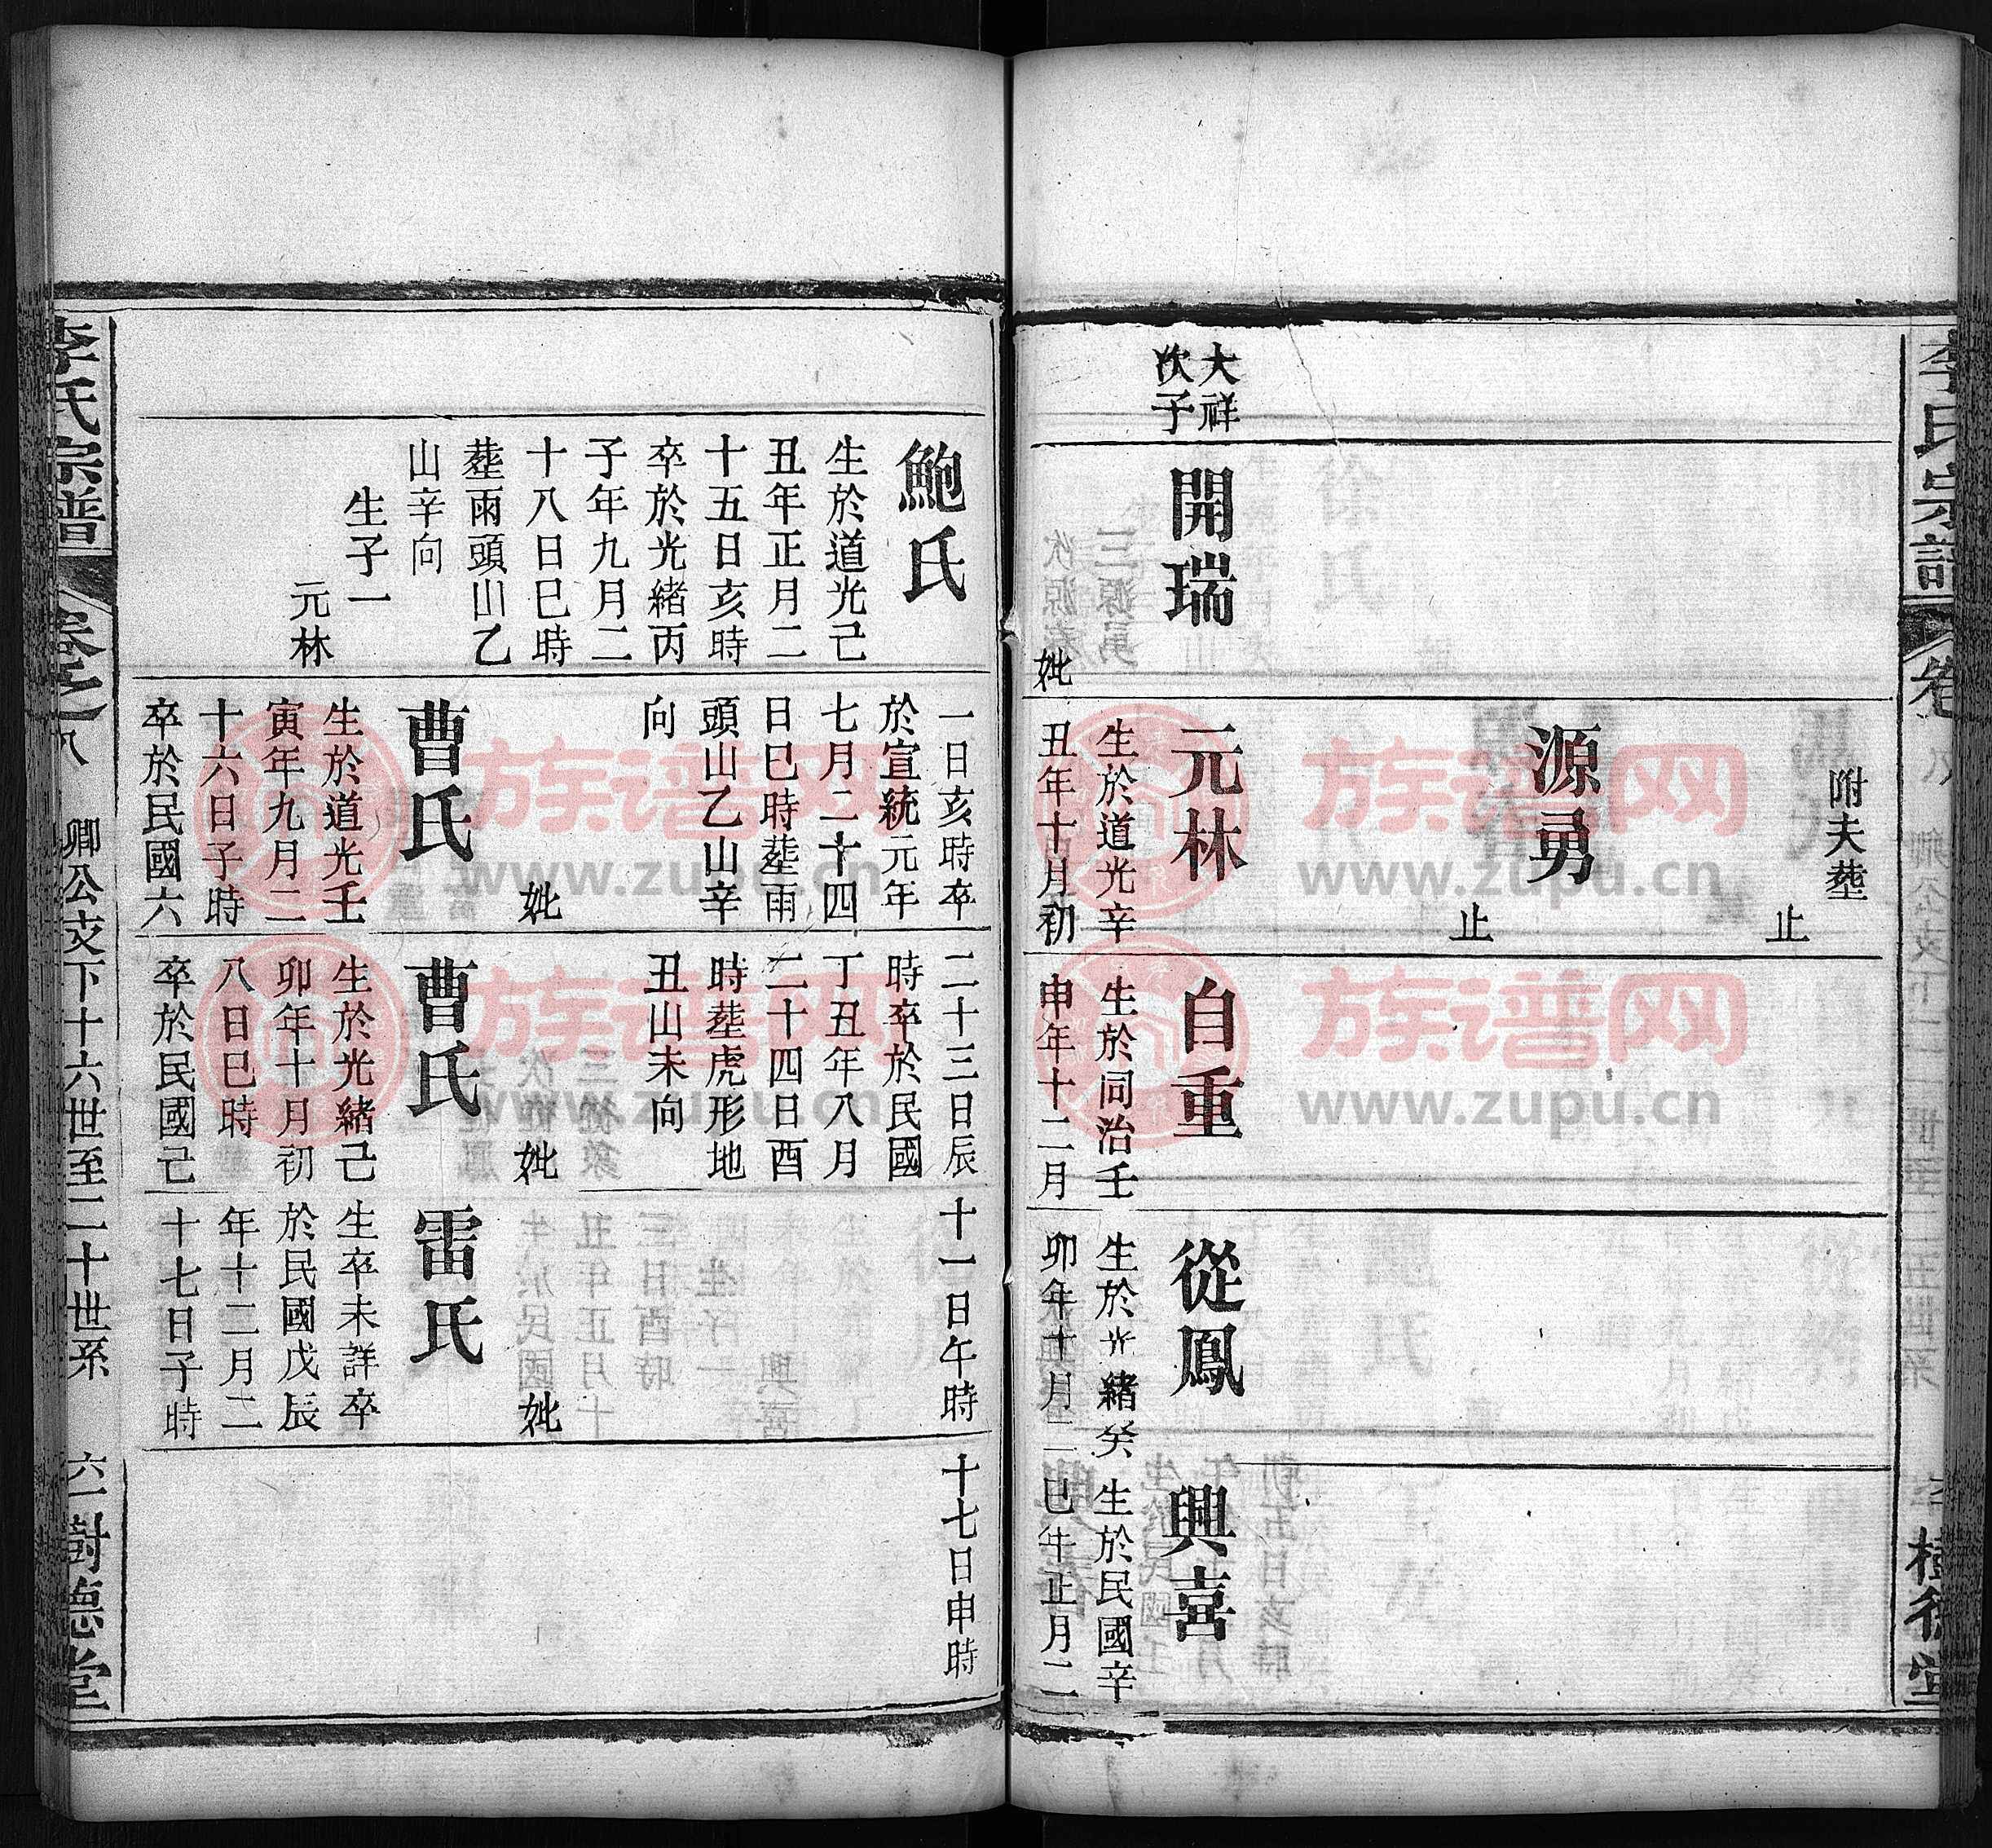 大祥
次子
開瑞
妣
附夫塟
止
源勇
止
元林
生於道光辛
丑年十月初
自重
生於同治壬
申年十二月
從鳳
生於光緒癸
卯年十月二
興喜
生於民國辛
巳年正月二
鮑氏
生於道光己
丑年正月二
十五日亥時
卒於光緒丙
子年九月二
十八日巳時
塟雨頭山乙
山辛向
生子一
元林
一日亥時卒
於宣統元年
七月二十四
日巳時塟雨
頭山乙山辛
向
妣
曹氏
生於道光壬
寅年九月二
十六日子時
卒於民國六
二十三日辰
時卒於民國
丁丑年八月
二十四日酉
時塟虎形地
丑山未向
妣
曹氏
生於光緒己
卯年十月初
八日巳時
卒於民國己
十一日午時
妣
雷氏
生卒未詳卒
於民國戊辰
年十二月二
十七日子時
十七日申時
李氏宗譜
卷之八
卿公支下十六世至二十世系
六一
樹德堂
族谱网
www.zupu.cn
族谱网
www.zupu.cn
族谱网
www.zupu.cn
族谱网
www.zupu.cn